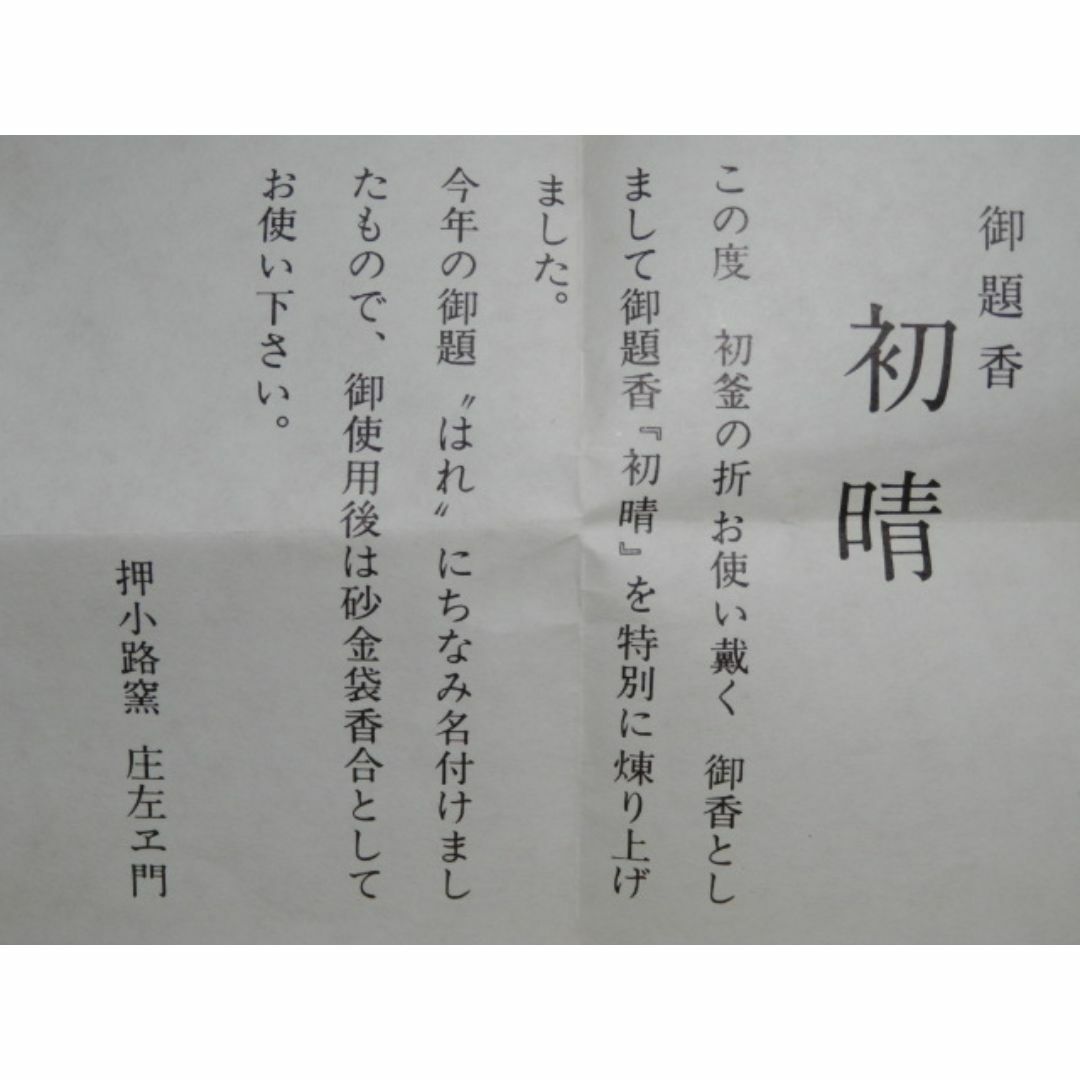 御題香
初晴
この度　初釜の折お使い戴く　御香とし
まして御題香『初晴』を特別に煉り上げ
ました。
今年の御題〝はれ〟にちなみ名付けまし
たもので、御使用後は砂金袋香合として
お使い下さい。
押小路窯　庄左ヱ門